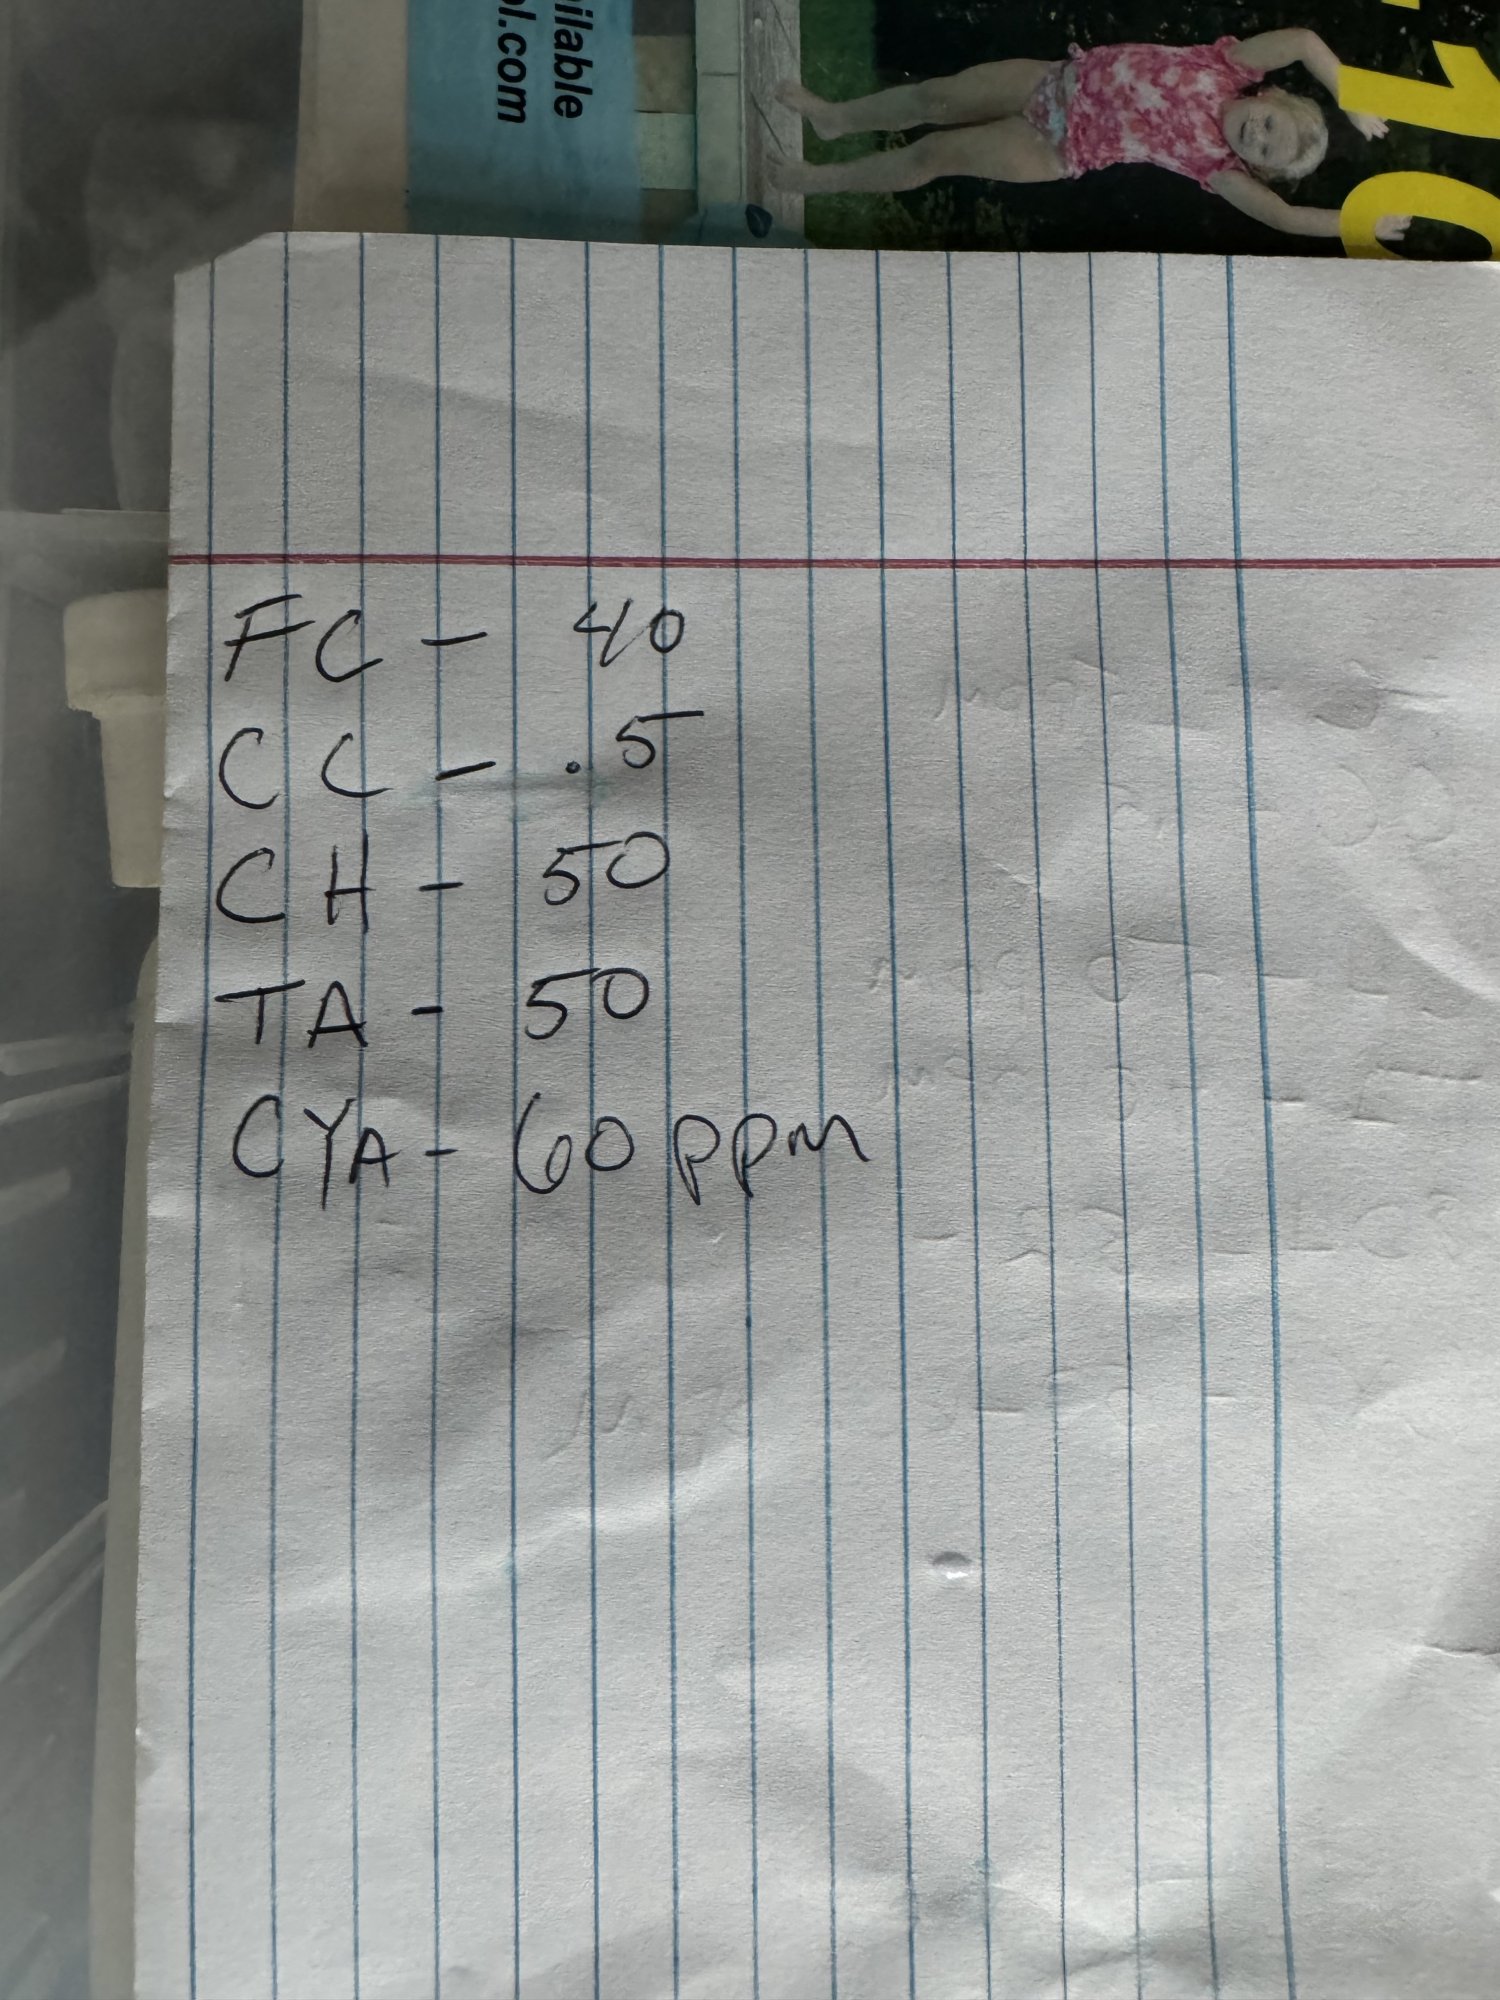 ilable
ol.com
10
FC - 40
CC - .5
CH - 50
TA - 50
CYA - 60 ppm